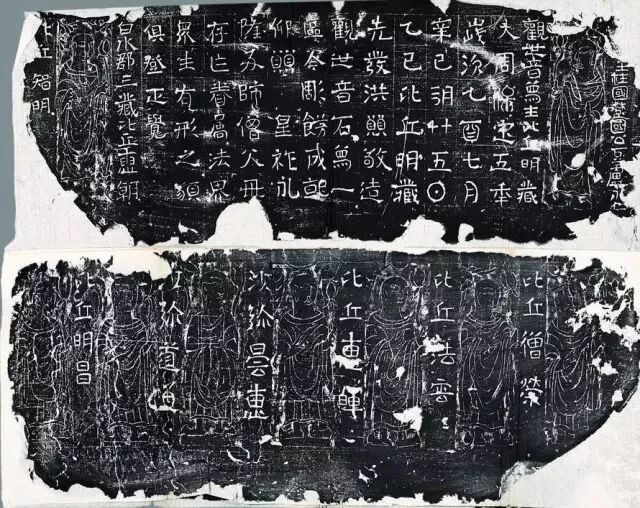 柱國
觀世音像主比丘明藏
大周保定五年
歲次乙酉七月
辛巳朔廿五〇
乙巳比丘明藏
先發洪願敬造
觀世音石像一
區今彫飾成就
仰願 皇祚永
隆及師僧父母
存亡眷屬法界
衆生有形之類
俱登正覺
白水郡三藏比丘曇朗
比丘智明
比丘僧榮
比丘法雲
比丘惠暉
沙弥曇惠
沙弥道海
比丘明昌